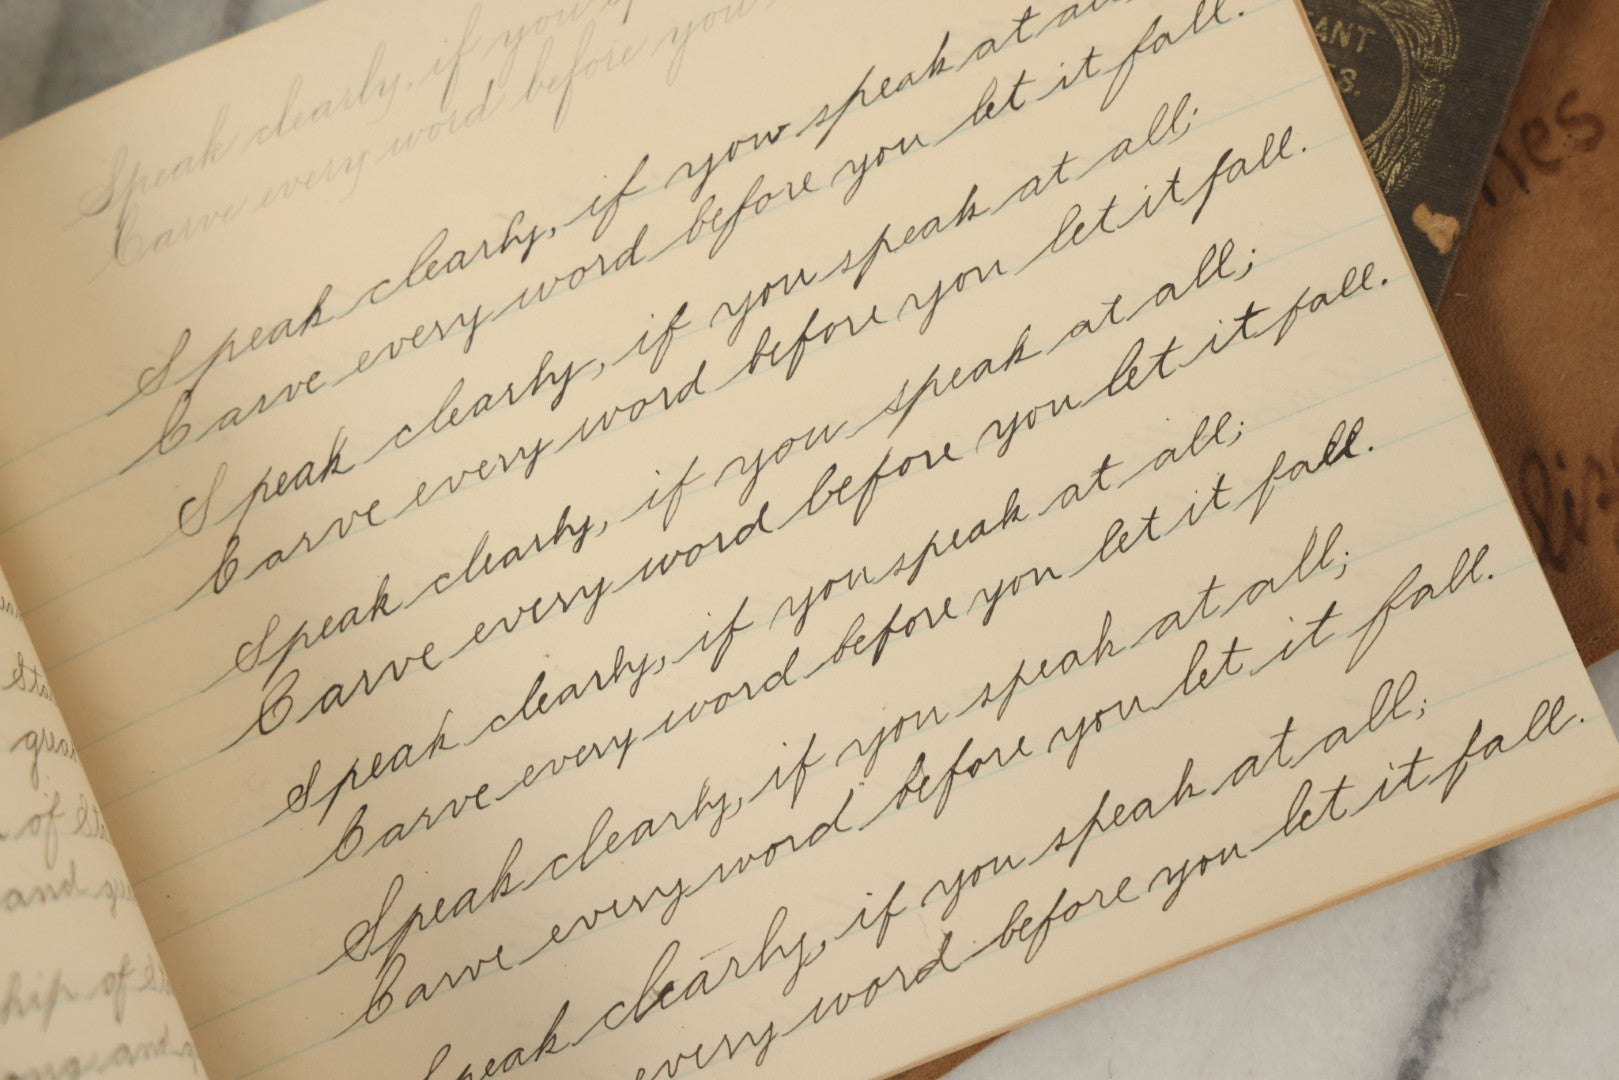 Speak clearly, if you
Carve every word before you
Speak clearly, if you speak at
Carve every word before you let it fall.
Speak clearly, if you speak at all;
Carve every word before you let it fall.
Speak clearly, if you speak at all;
Carve every word before you let it fall.
Speak clearly, if you speak at all;
Carve every word before you let it fall.
Speak clearly, if you speak at all;
Carve every word before you let it fall.
Speak clearly, if you speak at all;
every word before you let it fall.
of
and
hip of
and
ANT